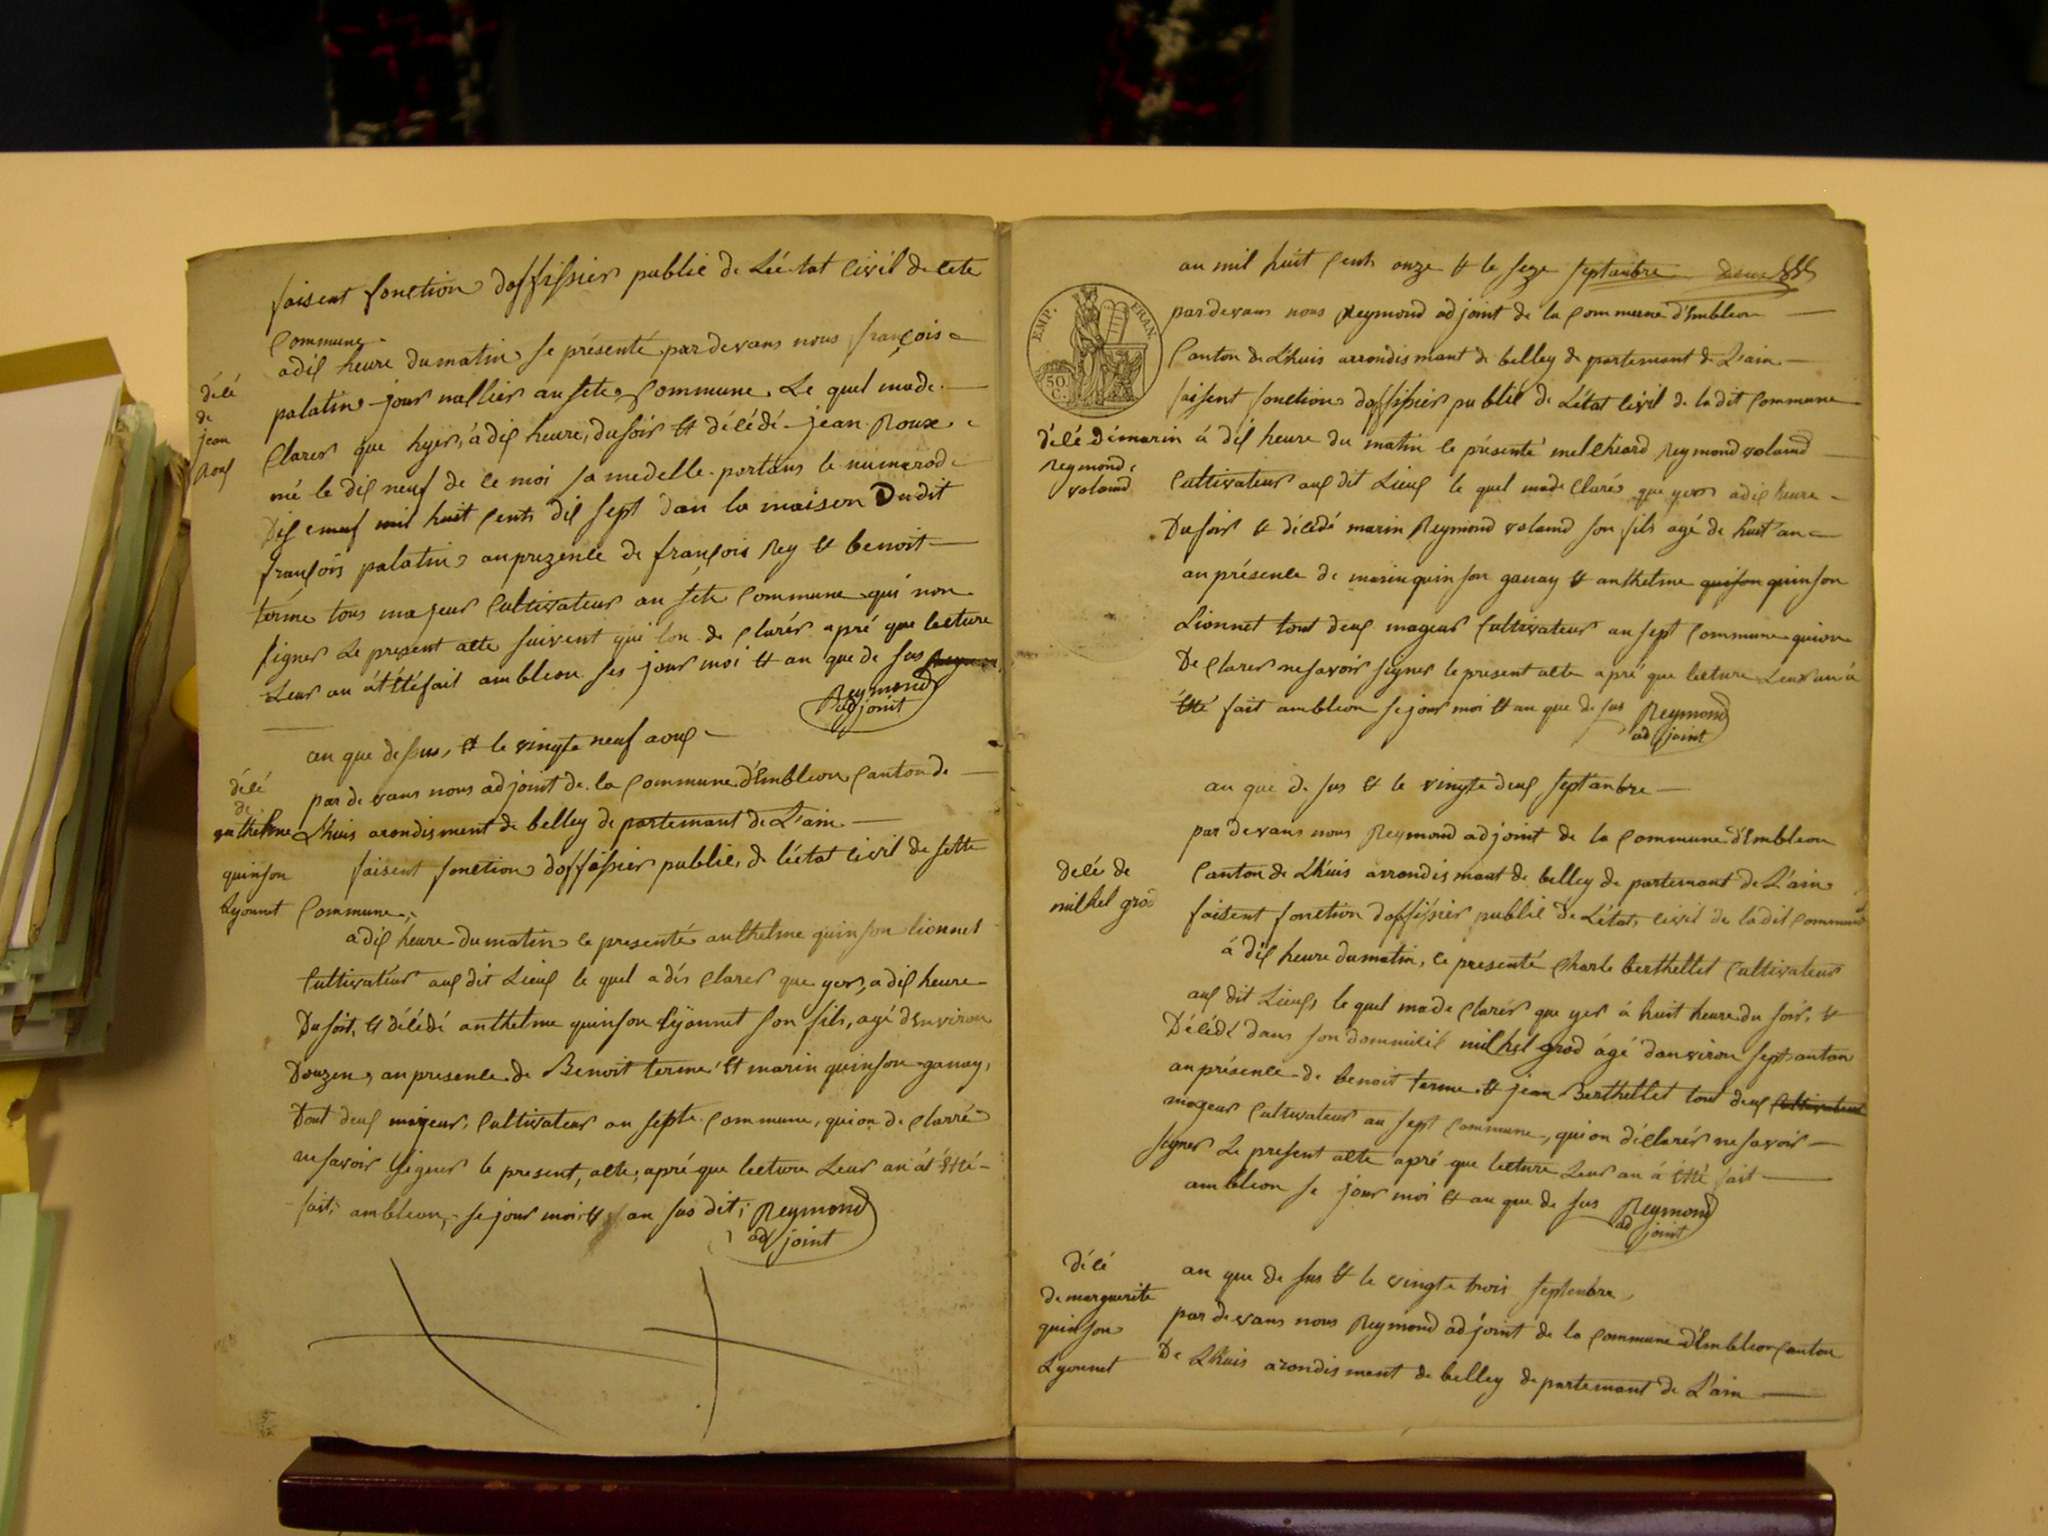 faisent fonction doffissier publié de Léétat Civil de cete
Commune
décé de jean Roux
adix heure du matin se présenté par devans nous françois
palatin jour nallier au sete Commune Le quel made
Clarer que hyer, à dix heure, du soir et décédé jean Roux
né le dix neuf de ce moi sa medelle portans le numerod
Dix e neuf mil huit Cents dix sept dan la maison Dudit
françois palatin an prezence de françois Rey et benoit
terme tous majeur Cultivateur au sete Commune qui non
signer Le present acte suivent qui lon de Clarér apré que lecture
Leur an ât étéfait ambléon ses jour moi et an que de sus
Reymond
adjoint
an que desus, et le vingte neuf aoux
décé de anthelme quinson Lyonnet
par de vans nous adjoint de la Commune d'Embleon Canton de
Lhuis arondisment de belley de partemant de L'ain
faisent fonction doffissier publié, de létat Civil de sette
Commune,
a dix heure du matin ce presenté anthelme quinson lionnet
Cultivatéur aux dit Lieux le quel a dés Clarer que yer, a dix heure
Du soir, et décédé anthelme quinson Lÿonnet son fils, agé d'Environ
Douzen, an presence de Benoit terme et marin quinson ganay,
tout deux majeur, Cultivateur an septe Commune, quion de Clarré
ne savoir sigeur le present, acte, apré que lecture Leur an ât étté
fait, ambléon, se jour moi et an sus dit, Reymond
adjoint
an mil huit Cents onze et le seze septanbre
EMP. FRAN.
50 C.
par devans nous Reymond adjoint de la Commune d'Embleon
Canton de Lhuis arrondismant de belley de partemant de L'ain
faisent fonction doffissier publié de Létat Civil de la dit Commune
décé démarin Reymond voland
à dix heure du matin ce présenté melchiord Reymond voland
Cultivateur aux dit Lieux le quel made Claré que yer a dix heure
Du soir et décédé marin Reymond voland son fils agé de huit an
an présence de marin quinson ganay et anthelme quison quinson
Lionnet tout deux mageur Cultivateur an sept Commune quion
De Clarer ne savoir signer le present acte apré que lecture Leur an à
étté fait ambleon se jour moi et an que de sus Reymond
adjoint
an que de sus et le vingte deux septanbre
par devans nous Reymond adjoint de la Commune d'Embleon
décé de milhel grod
Canton de Lhuis arrondismant de belley de partemant de L'ain
faisent fonction doffissier publié De Létat Civil de la dit Commune
à dix heure du matin, ce presenté Charle berthellet Cultivateur
aux dit Lieux le quel made Clarér que yer à huit heure du soir, et
Décédé dans son dommicil milhel grod âgé danviron sept anton
an présence de benoit terme et jean Berthellet tout deux Cultivateur
mageur Cultivateur an sept Commune, quion déClarér ne savoir
signer Le present acte apré que lecture Leur an à étté fait
ambleon se jour moi et an que de sus Reymond
adjoint
décé de marguerite quinson Lyonnet
an que de sus et le vingte trois septenbre
par devans nous Reymond adjoint de la Commune d'Embleon Canton
De Lhuis arondisment de belley de partemant de L'ain